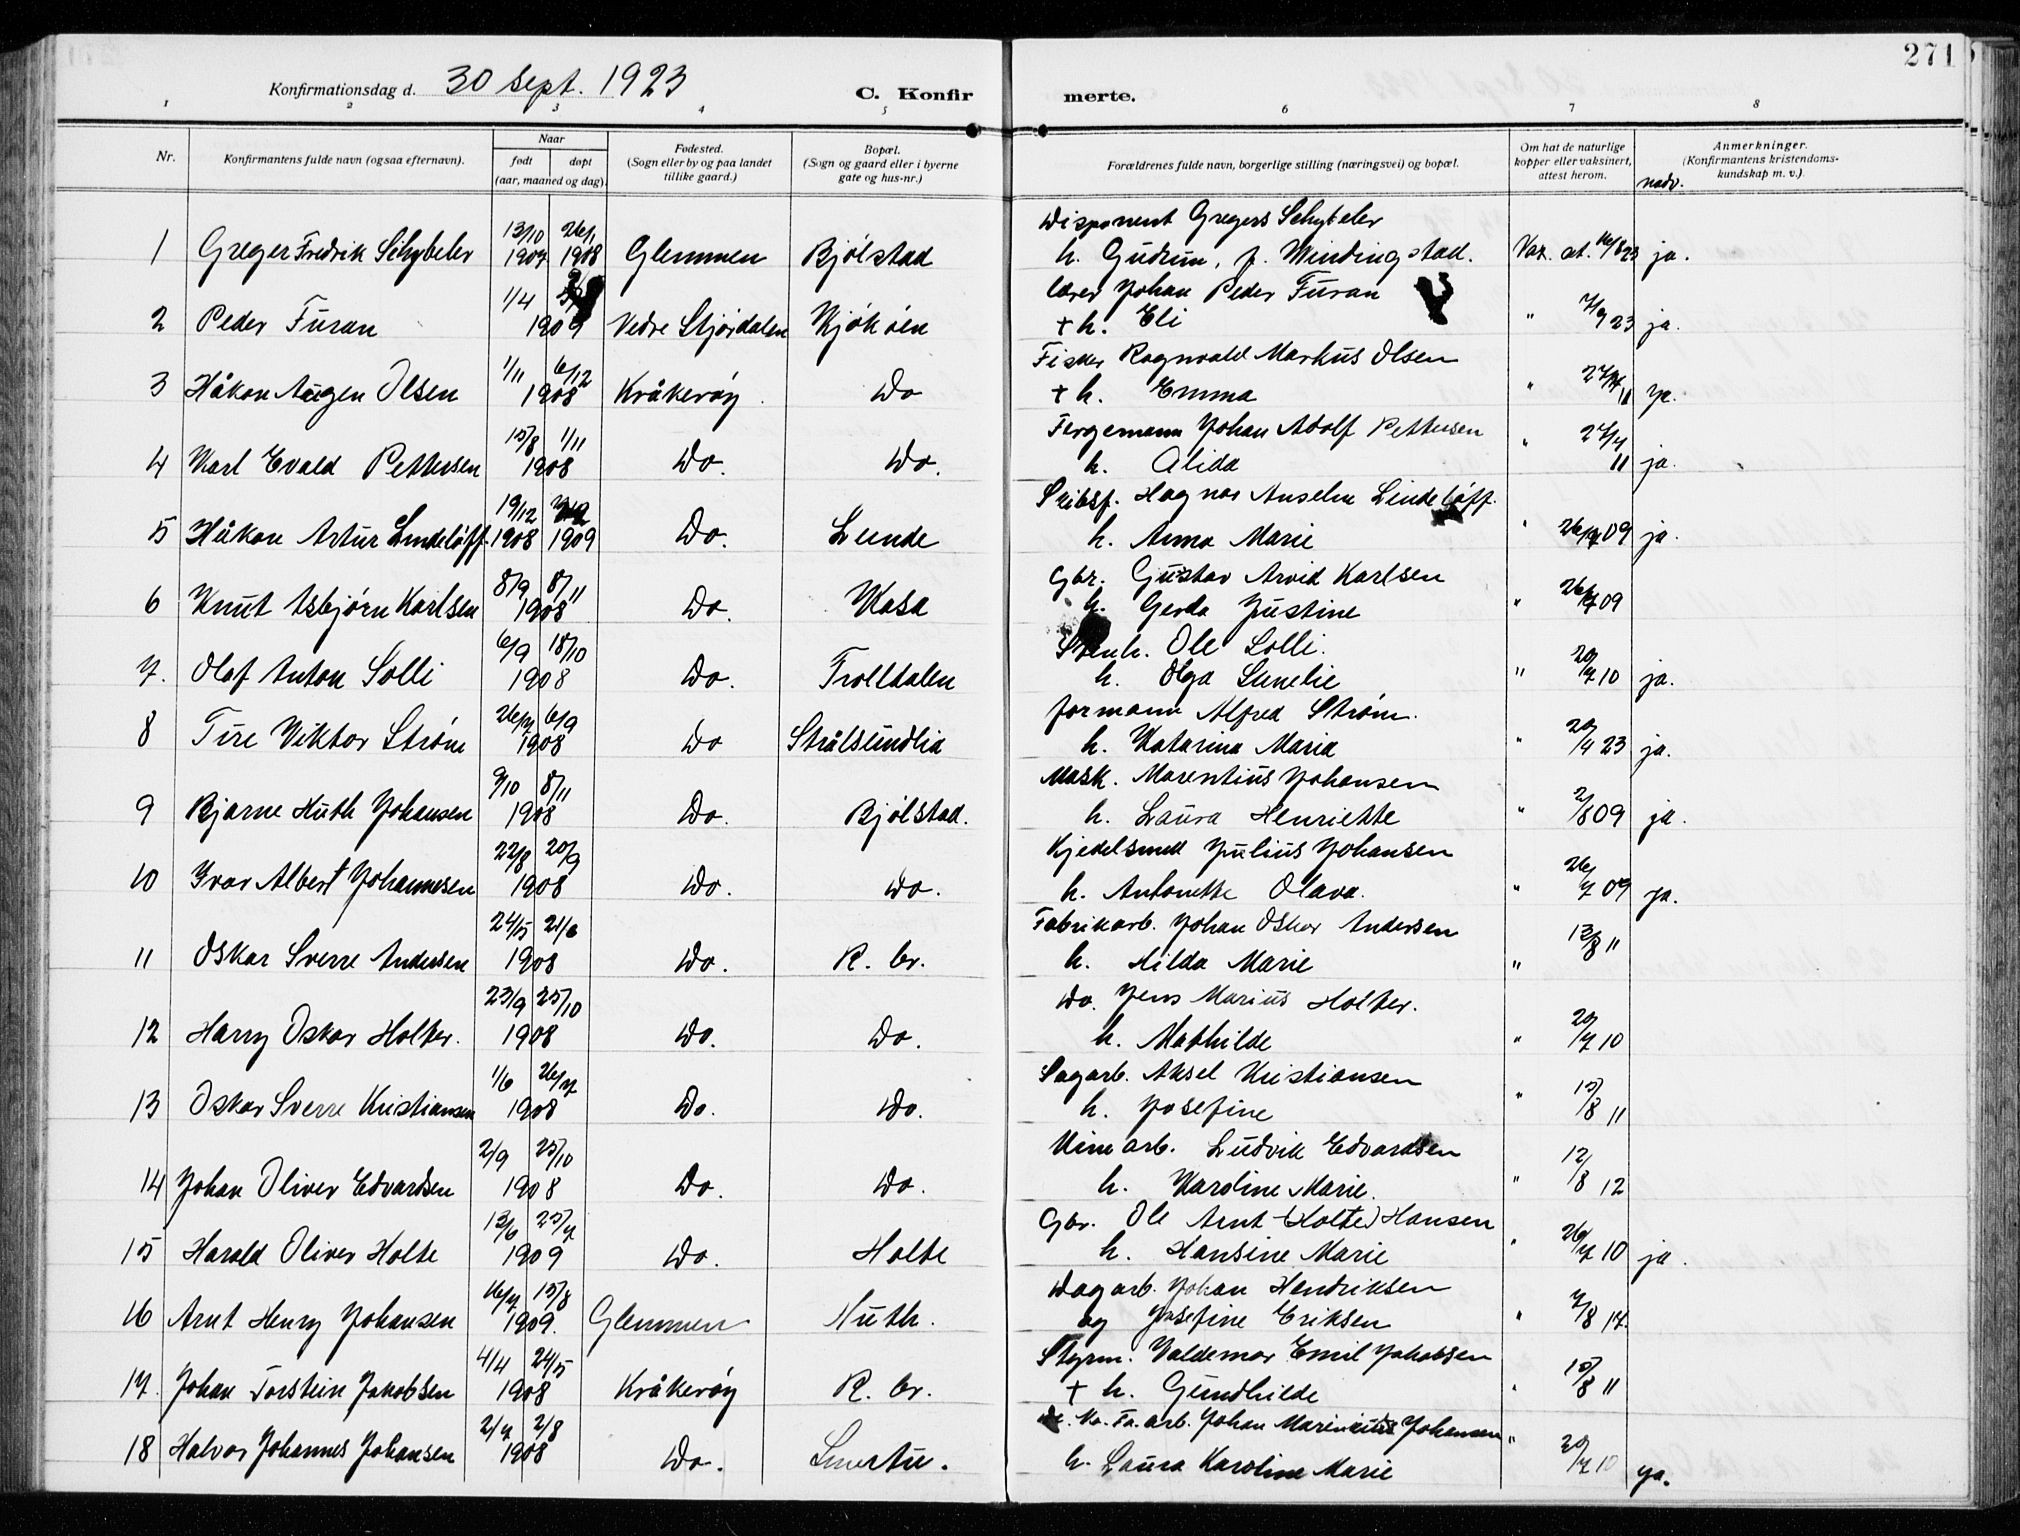 271
Konfirmationsdag d. 30 Sept. 1923
C. Konfirmerte.
1 2 3 4 5 6 7 8
Nr. Konfirmantens fulde navn (ogsaa efternavn). Naar født døpt (aar, maaned og dag) Fødested. (Sogn eller by og paa landet tillike gaard.) Bopæl. (Sogn og gaard eller i byerne gate og hus-nr.) Forældrenes fulde navn, borgerlige stilling (næringsvei) og bopæl. Om hat de naturlige kopper eller vaksinert, attest herom. Anmerkninger. (Konfirmantens kristendomskundskap m. v.)
Disponent Gregers Schybeler
1 Greger Fredrik Schybeler 13/10 1907 26/1 1908 Glemmen Bjølstad h. Gudrun, f. Windingstad. Vax. at. 16/8 23 ja.
Lærer Johan Peder Furan
2 Peder Furan 1/4 1909 Nedre Stjørdalen Kjøkøen + h. Eli " 7/9 23 ja.
Fisker Ragnvald Markus Olsen
3 Håkon Augen Olsen 1/11 6/12 1908 Kråkerøy Do + h. Emma " 11 ja.
Fergemann Johan Adolf Pettersen
4 Karl Evald Pettersen 15/8 1/11 1908 Do. Do. h. Alida " 27/7 11 ja.
Skibsf. Hagnar Anselm Lindeløff.
5 Håkon Artur Lindeløff. 19/12 1908 1909 Do. Lunde h. Anna Marie " 26/7 09 ja.
Gbr. Gustav Arvid Karlsen
6 Knut Asbjørn Karlsen 8/9 8/11 1908 Do. Kasa h. Gerda Justine " 26/7 09
Stenh. Ole Solli.
7. Olaf Anton Solli 6/9 18/10 1908 Do. Trolldalen h. Olga Lunelie " 20/7 10 ja.
formann Alfred Strøm.
8 Ture Viktor Strøm 26/7 6/9 1908 Do Strålsundlia h. Katarina Maria " 20/4 23 ja.
Mask. Marentius Johansen
9 Bjarne Huth Johansen 9/10 8/11 1908 Do. Bjølstad. h. Laura Henriette " 2/8 09 ja.
Kjedelsmed Julius Johansen
10 Ivar Albert Johannesen 22/8 20/9 1908 Do. Do. h. Antonette Olava. " 26/7 09 ja.
Fabrikarb. Johan Oskar Andersen
11 Oskar Sverre Andersen 24/5 21/6 1908 Do. R. br. h. Hilda Marie " 13/8 11
Do. Jens Marius Holter.
12 Harry Oskar Holter. 23/9 25/10 1908 Do. Do. h. Mathilde " 20/7 10
Sagarb. Aksel Kristiansen
13 Oskar Sverre Kristiansen 1/6 26/7 1908 Do. Do. h. Josefine " 15/8 11
Minearb. Ludvik Edvardsen
14 Johan Oliver Edvardsen 2/9 25/10 1908 Do. Do. h. Karoline Marie. " 12/8 12
Gbr. Ole Arnt (Holte) Hansen
15 Harald Oliver Holte 13/6 25/7 1909 Do. Holte h. Hansine Marie " 26/7 10 ja.
Dagarb. Johan Hendriksen
16 Arnt Henry Johansen 16/7 15/8 1909. Glemmen Huth. og Josefine Eriksen " 7/8 17.
Styrm. Valdemar Emil Jakobsen
17. Johan Torstein Jakobsen 4/4 24/5 1908 Kråkerøy R. br. + h. Gundhilde " 15/8 11
arb. Johan Marinius Johansen
18 Halvor Johannes Johansen 2/7 2/8 1908 Do. Smertu. h. Laura Karoline Marie " 20/7 10 ja.